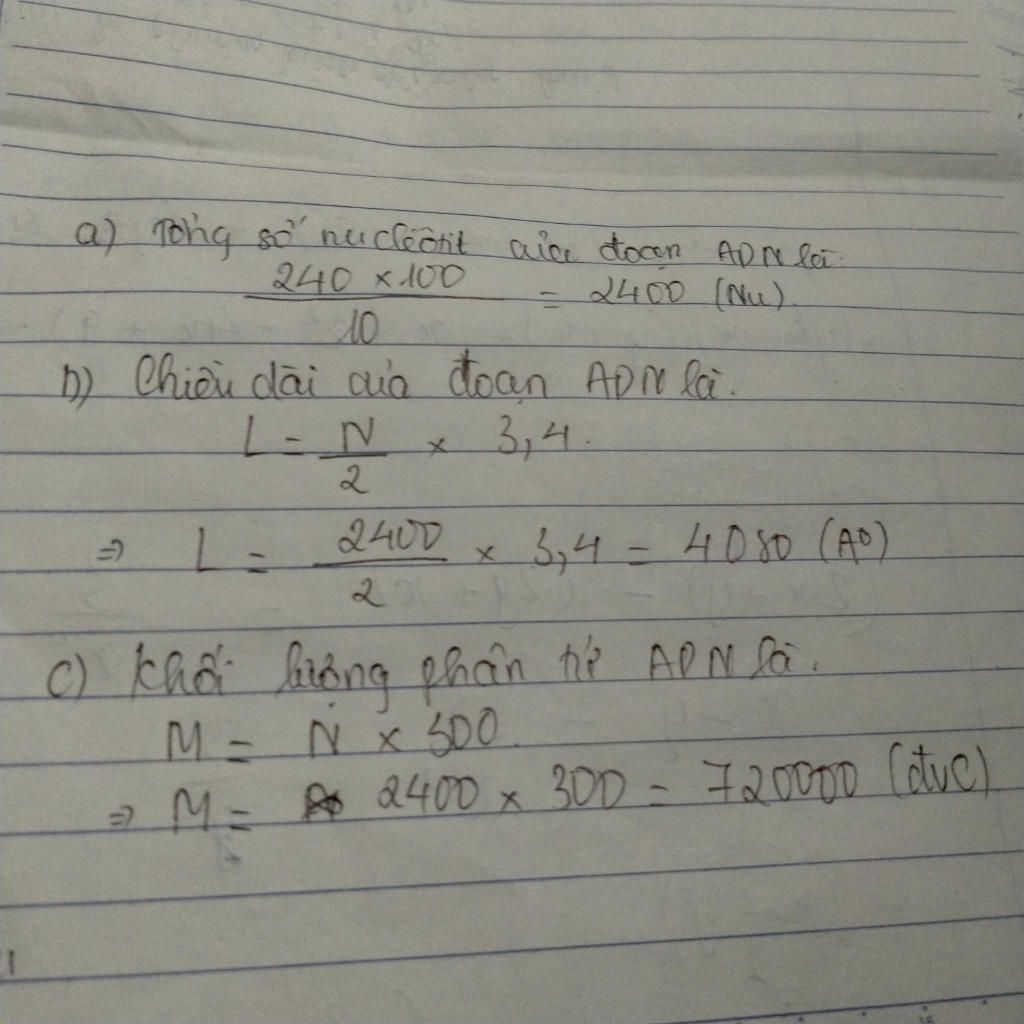 a) Tổng số nuclêôtit của đoạn ADN là:
240 × 100
= 2400 (Nu).
10
b) Chiều dài của đoạn ADN là.
L = N/2 × 3,4.
⇒ L = 2400/2 × 3,4 = 4080 (A⁰)
c) Khối lượng phân tử ADN là.
M = N × 300.
⇒ M = 2400 × 300 = 720000 (đvC)